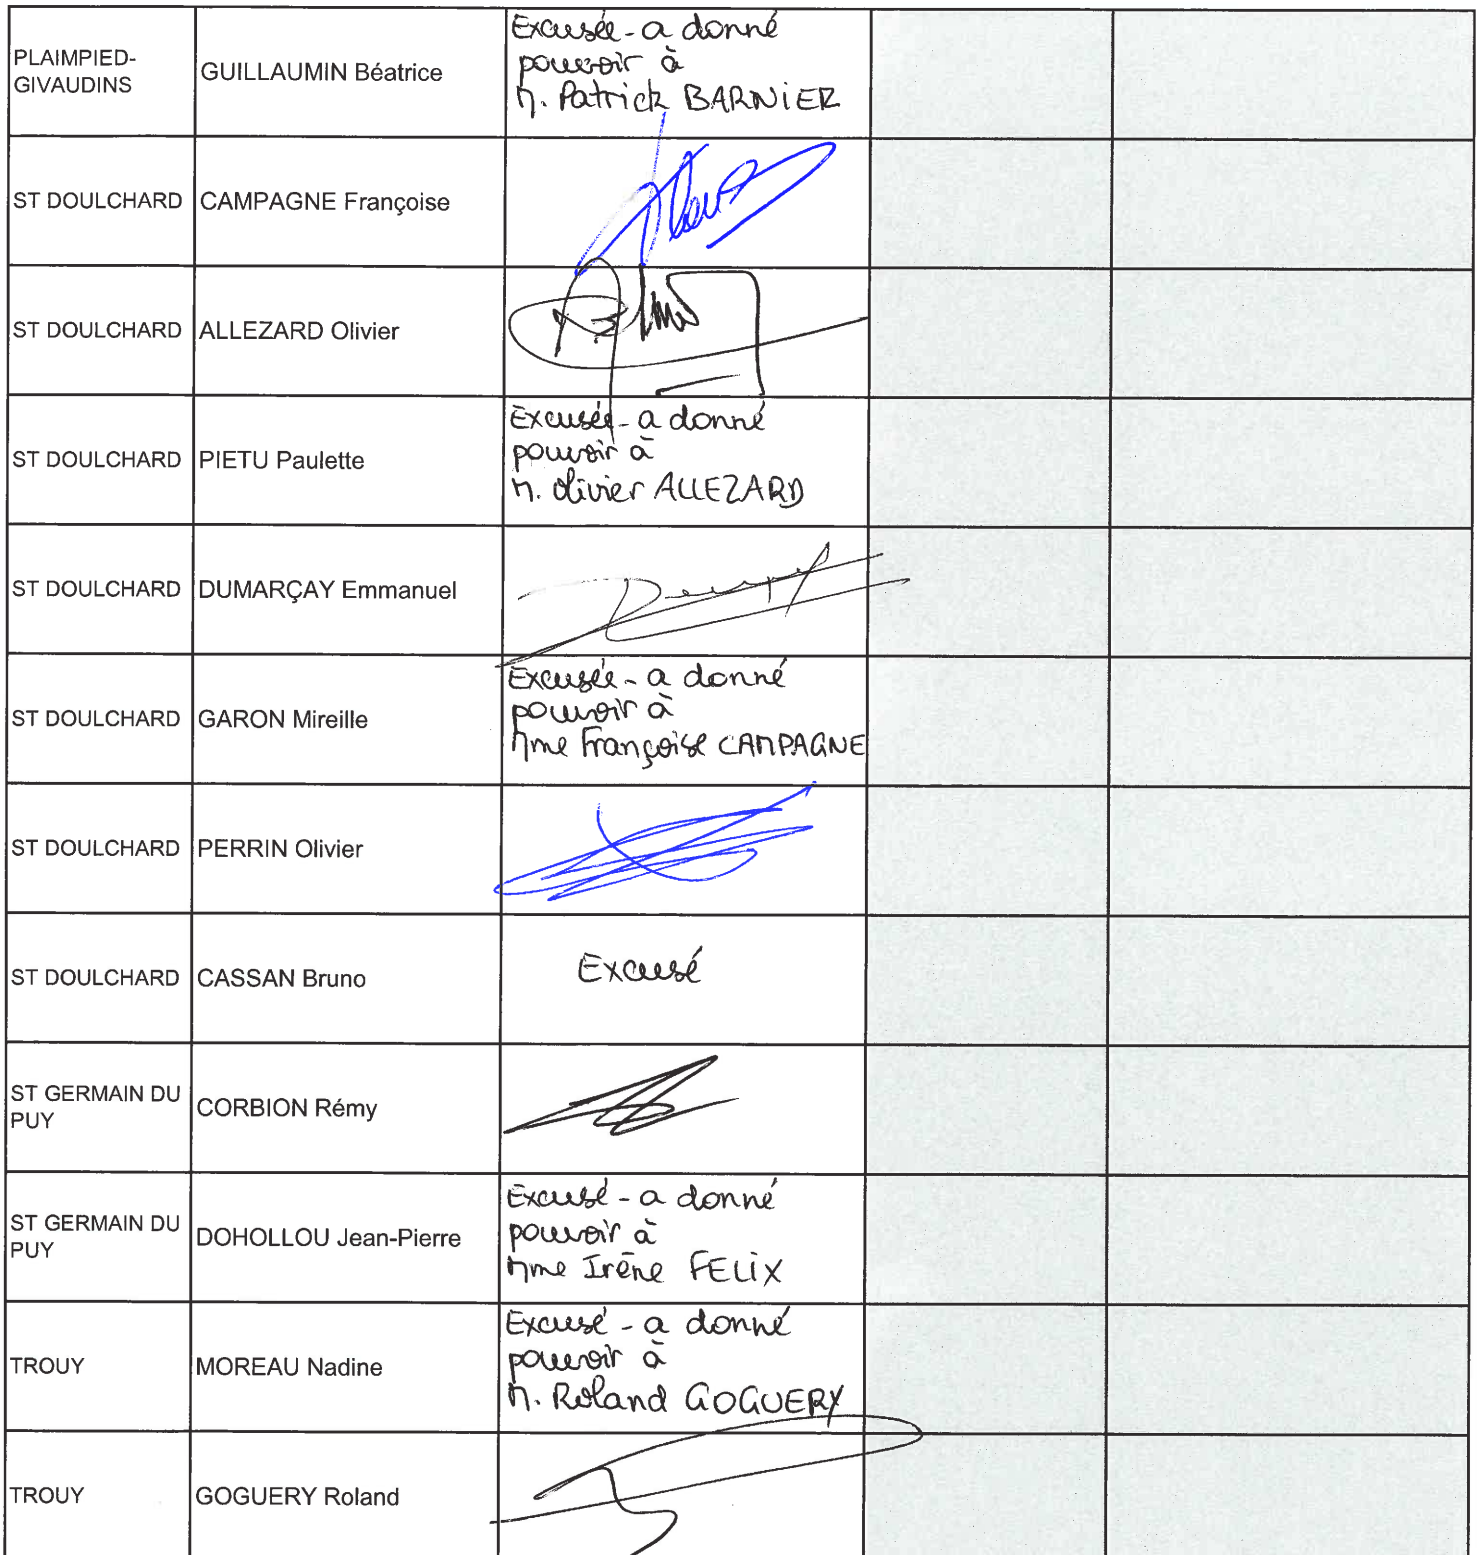 PLAIMPIED-
GIVAUDINS
GUILLAUMIN Béatrice
Excusée - a donné
pouvoir à
M. Patrick BARNIER
ST DOULCHARD
CAMPAGNE Françoise
ST DOULCHARD
ALLEZARD Olivier
ST DOULCHARD
PIETU Paulette
Excusée - a donné
pouvoir à
M. Olivier ALLEZARD
ST DOULCHARD
DUMARÇAY Emmanuel
ST DOULCHARD
GARON Mireille
Excusée - a donné
pouvoir à
Mme Françoise CAMPAGNE
ST DOULCHARD
PERRIN Olivier
ST DOULCHARD
CASSAN Bruno
Excusé
ST GERMAIN DU
PUY
CORBION Rémy
ST GERMAIN DU
PUY
DOHOLLOU Jean-Pierre
Excusé - a donné
pouvoir à
Mme Irène FELIX
TROUY
MOREAU Nadine
Excusé - a donné
pouvoir à
M. Roland GOGUERY
TROUY
GOGUERY Roland